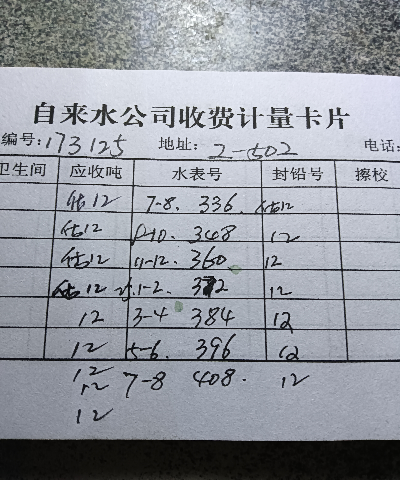 自来水公司收费计量卡片
编号:173125 地址: 2-502 电话:
卫生间 应收吨 水表号 封铅号 擦校
估12 7-8. 336. 估12
估12 9-10. 348 12
估12 11-12. 360 12
估12 1-2. 372 12
12 3-4 384 12
12 5-6. 396 12
12
12 7-8 408. 12
12